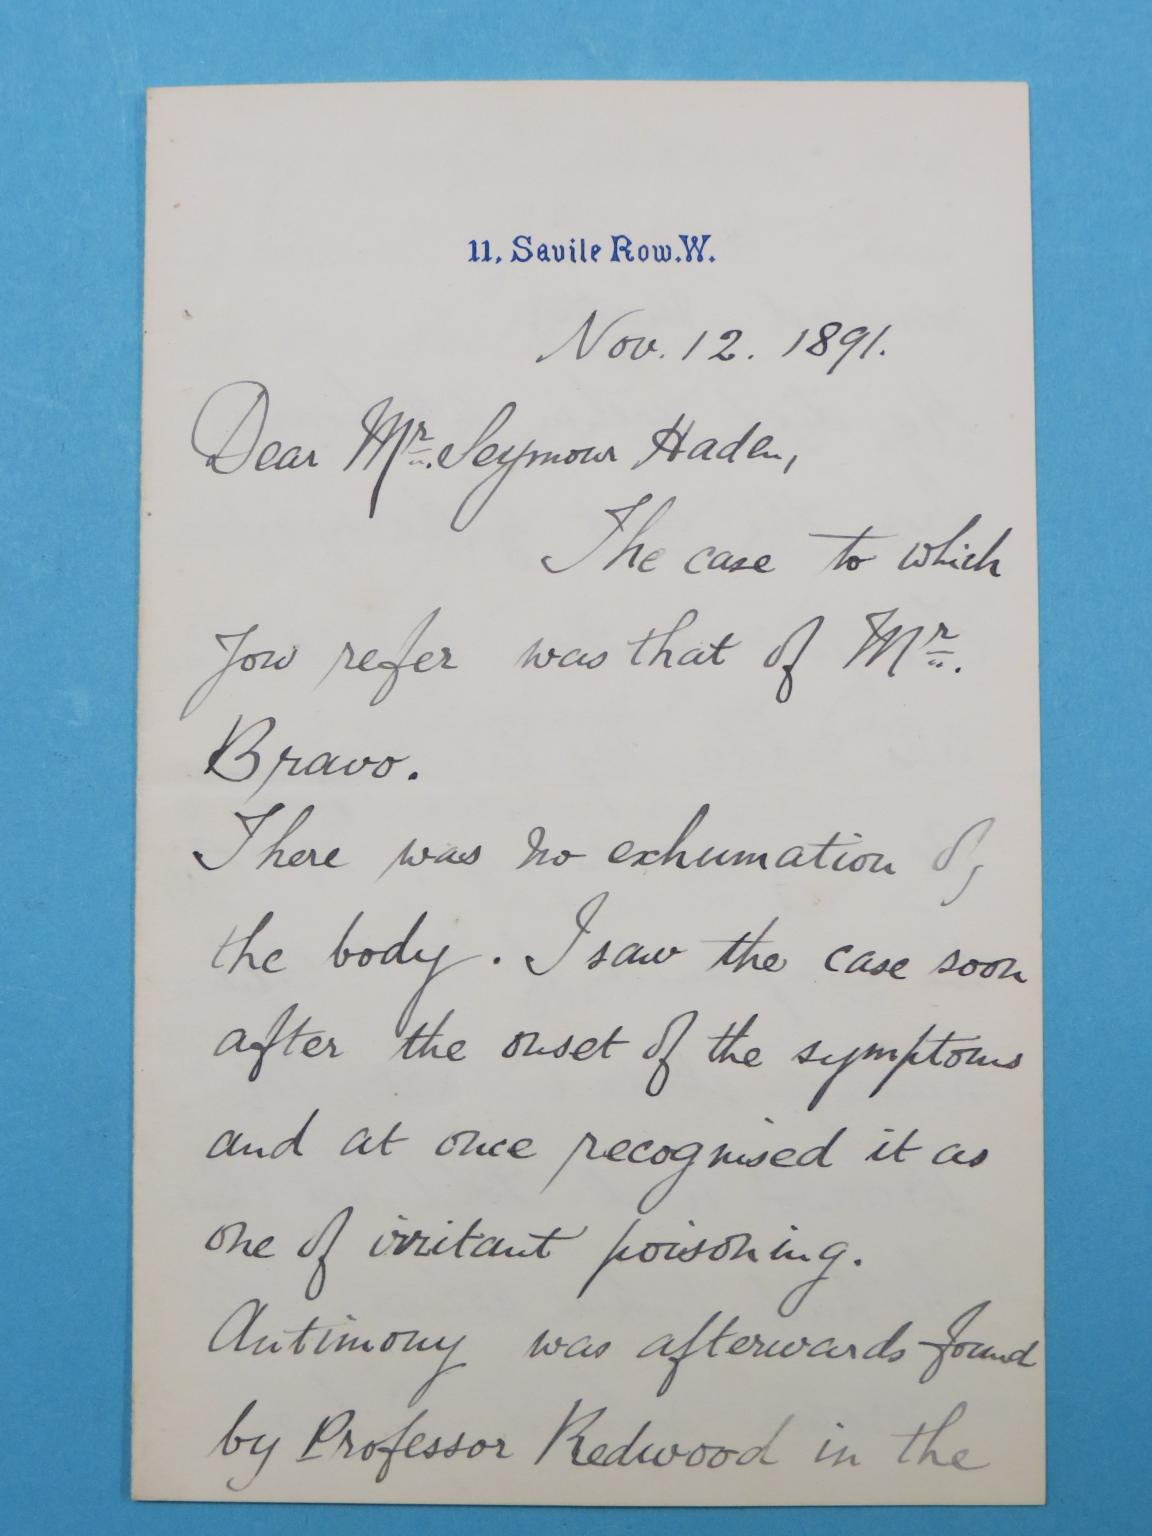 11, Savile Row. W.
Nov. 12. 1891.
Dear Mr. Seymour Haden,
The case to which
you refer was that of Mr.
Bravo.
There was no exhumation of
the body. I saw the case soon
after the onset of the symptoms
and at once recognised it as
one of irritant poisoning.
Antimony was afterwards found
by Professor Redwood in the